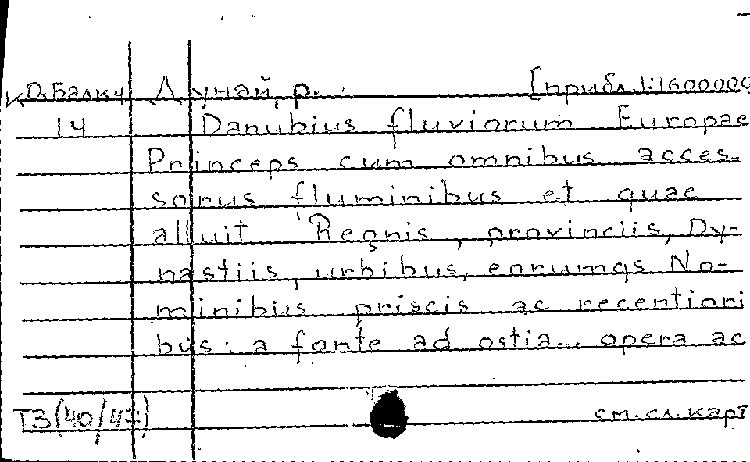 К О.Балку Дунай, р. [прибл. 1:1600000
14 Danubius fluviorum Europae
Princeps cum omnibus acces-
sorus fluminibus et quae
alluit Regnis, provinciis, Dy-
nastiis, urbibus, eorumqs No-
minibus priscis ac recentiori
bus. a fonte ad ostia... opera ac
Т3(40/47) см.сл.карт